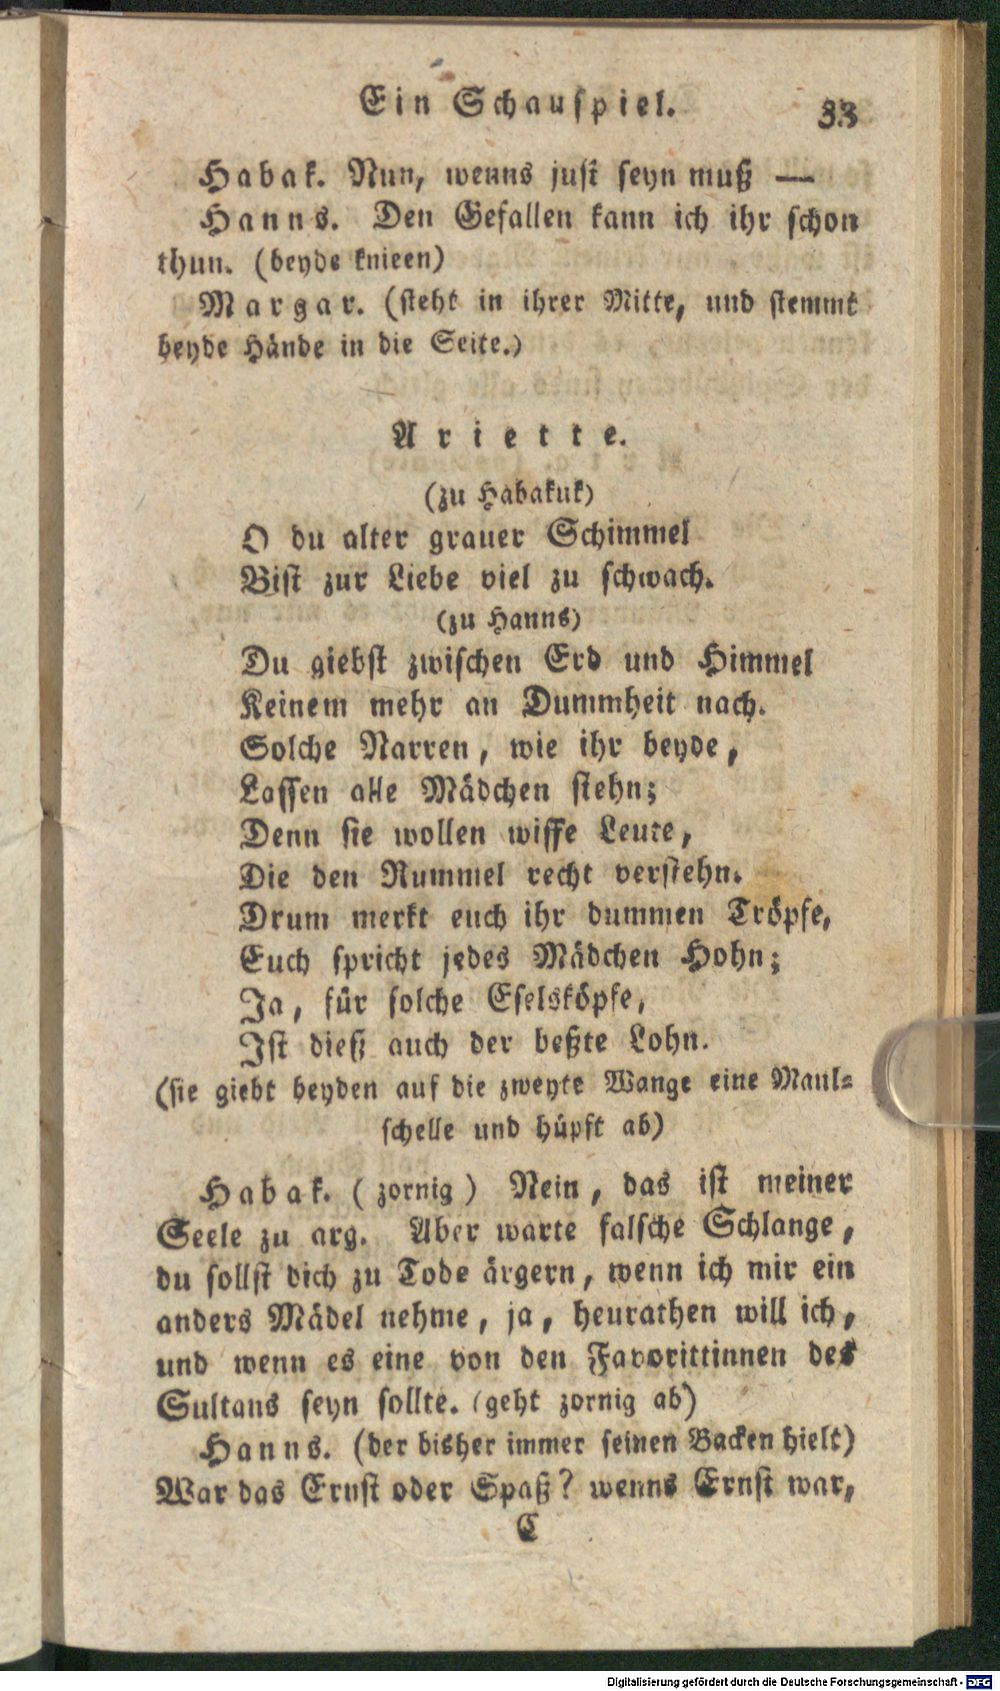 Ein Schauspiel. 33
Habak. Nun, wenns just seyn muß —
Hanns. Den Gefallen kann ich ihr schon
thun. (beyde knieen)
Margar. (steht in ihrer Mitte, und stemmt
beyde Hände in die Seite.)
Ariette.
(zu Habakuk)
O du alter grauer Schimmel
Bist zur Liebe viel zu schwach.
(zu Hanns)
Du giebst zwischen Erd und Himmel
Keinem mehr an Dummheit nach.
Solche Narren, wie ihr beyde,
Lassen alle Mädchen stehn;
Denn sie wollen wiffe Leute,
Die den Rummel recht verstehn.
Drum merkt euch ihr dummen Tröpfe,
Euch spricht jedes Mädchen Hohn;
Ja, für solche Eselsköpfe,
Ist dieß auch der beßte Lohn.
(sie giebt beyden auf die zweyte Wange eine Maul-
schelle und hüpft ab)
Habak. (zornig) Nein, das ist meiner
Seele zu arg. Aber warte falsche Schlange,
du sollst dich zu Tode ärgern, wenn ich mir ein
anders Mädel nehme, ja, heurathen will ich,
und wenn es eine von den Favorittinnen des
Sultans seyn sollte. (geht zornig ab)
Hanns. (der bisher immer seinen Backen hielt)
War das Ernst oder Spaß? wenns Ernst war,
C
Digitalisierung gefördert durch die Deutsche Forschungsgemeinschaft - DFG